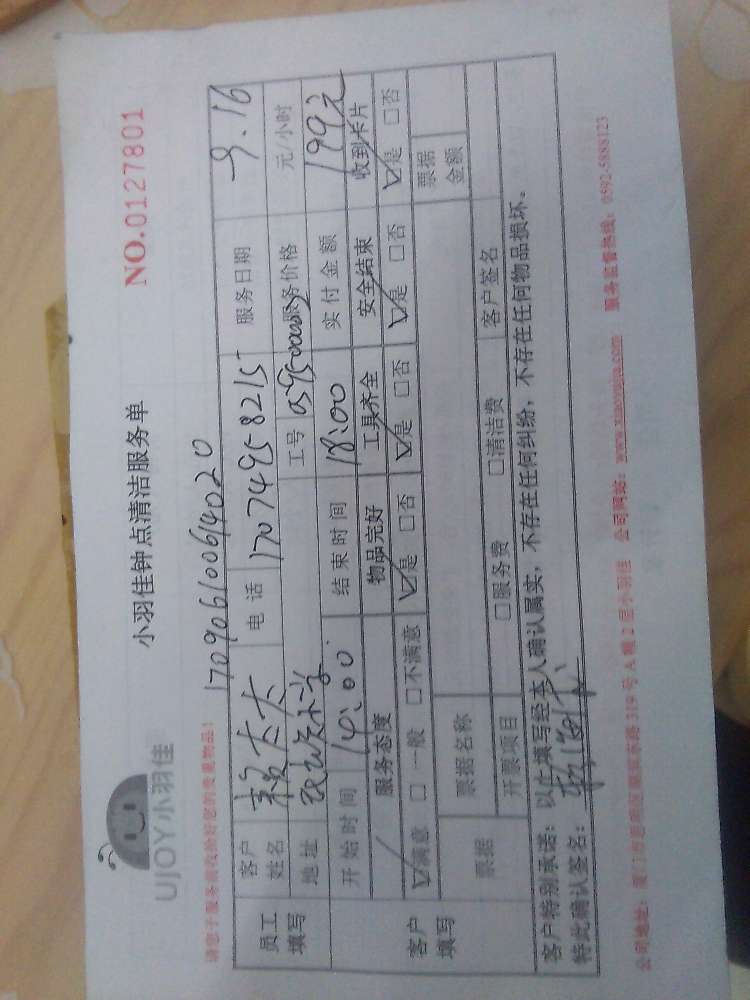 UJOY小羽佳
小羽佳钟点清洁服务单
NO.0127801
请您于服务前收拾好您的贵重物品!
170906100614020
员工填写
客户姓名 赖太太 电话 17074958215 服务日期 9.16
地址 工号 059500005 服务价格 元/小时
开始时间 14:00 结束时间 18:00 实付金额 199元
客户填写
服务态度 物品完好 工具齐全 安全结束 收到卡片
☑满意 □一般 □不满意 ☑是 □否 ☑是 □否 ☑是 □否 ☑是 □否
票据 票据名称 票据金额
开票项目 □服务费 □清洁费 客户签名
客户特别承诺:以上填写经本人确认属实,不存在任何纠纷,不存在任何物品损坏。
特此确认签名:
公司地址:厦门市思明区 319号A幢2层小羽佳 公司网站:www.xiaoyujia.com 服务监督热线:0592-5888123